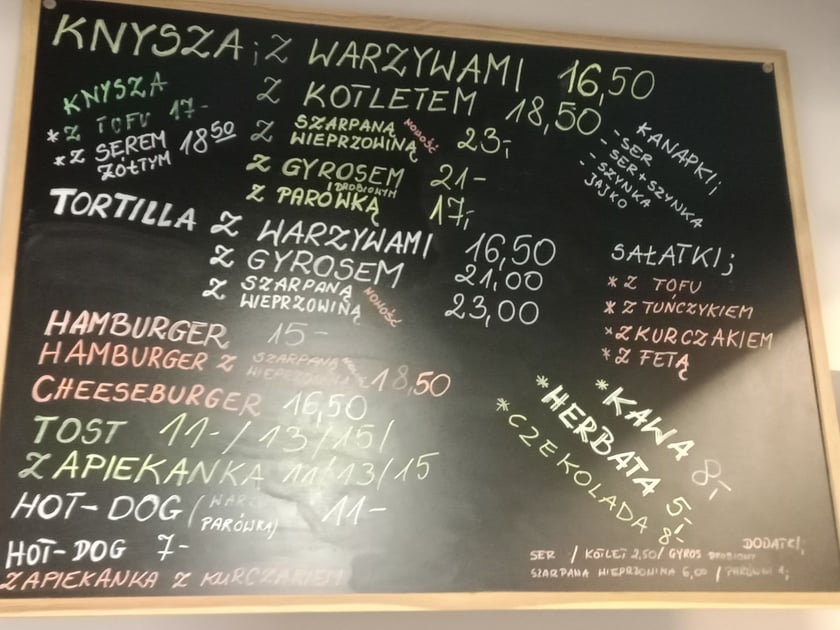 KNYSZA; Z WARZYWAMI 16,50
Z KOTLETEM 18,50
Z SZARPANĄ NOWOŚĆ
WIEPRZOWINĄ 23,-
Z GYROSEM 21-
DROBIOWYM
Z PARÓWKĄ 17,-
KNYSZA
*Z TOFU 17-
*Z SEREM 18 50
ŻÓŁTYM
TORTILLA Z WARZYWAMI 16,50
Z GYROSEM 21,00
Z SZARPANĄ
WIEPRZOWINĄ NOWOŚĆ 23,00
HAMBURGER 15-
HAMBURGER Z SZARPANĄ
WIEPRZOWINĄ 18,50
CHEESEBURGER 16,50
TOST 11-/13/15/
ZAPIEKANKA 11/13/15
HOT-DOG (
PARÓWKA) 11-
HOT-DOG 7-
ZAPIEKANKA Z KURCZAKIEM
KANAPKI;
- SER
- SER+SZYNKA
- SZYNKA
JAJKO
SAŁATKI;
*Z TOFU
*Z TUŃCZYKIEM
*Z KURCZAKIEM
*Z FETĄ
*KAWA 8,-
*HERBATA 5,-
*CZEKOLADA 8-
DODATKI;
SER / KOTLET 2,50/ GYROS DROBIOWY
SZARPANA WIEPRZOWINA 6,00 /